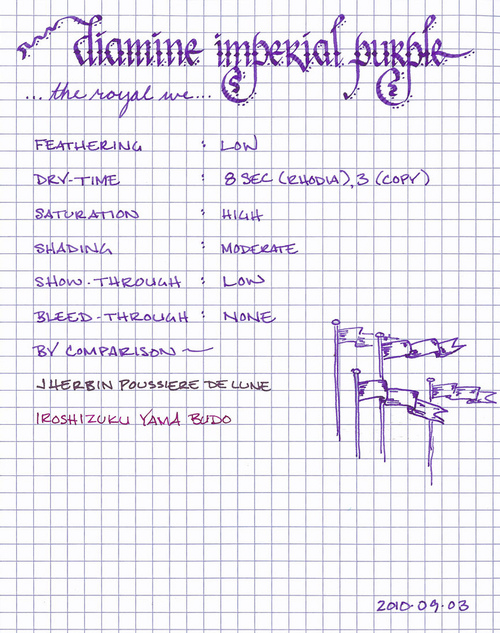 diamine imperial purple
...the royal we...
FEATHERING : LOW
DRY-TIME : 8 SEC (RHODIA), 3 (COPY)
SATURATION : HIGH
SHADING : MODERATE
SHOW-THROUGH : LOW
BLEED-THROUGH : NONE
BY COMPARISON ~
J HERBIN POUSSIERE DE LUNE
IROSHIZUKU YAMA BUDO
2010.09.03